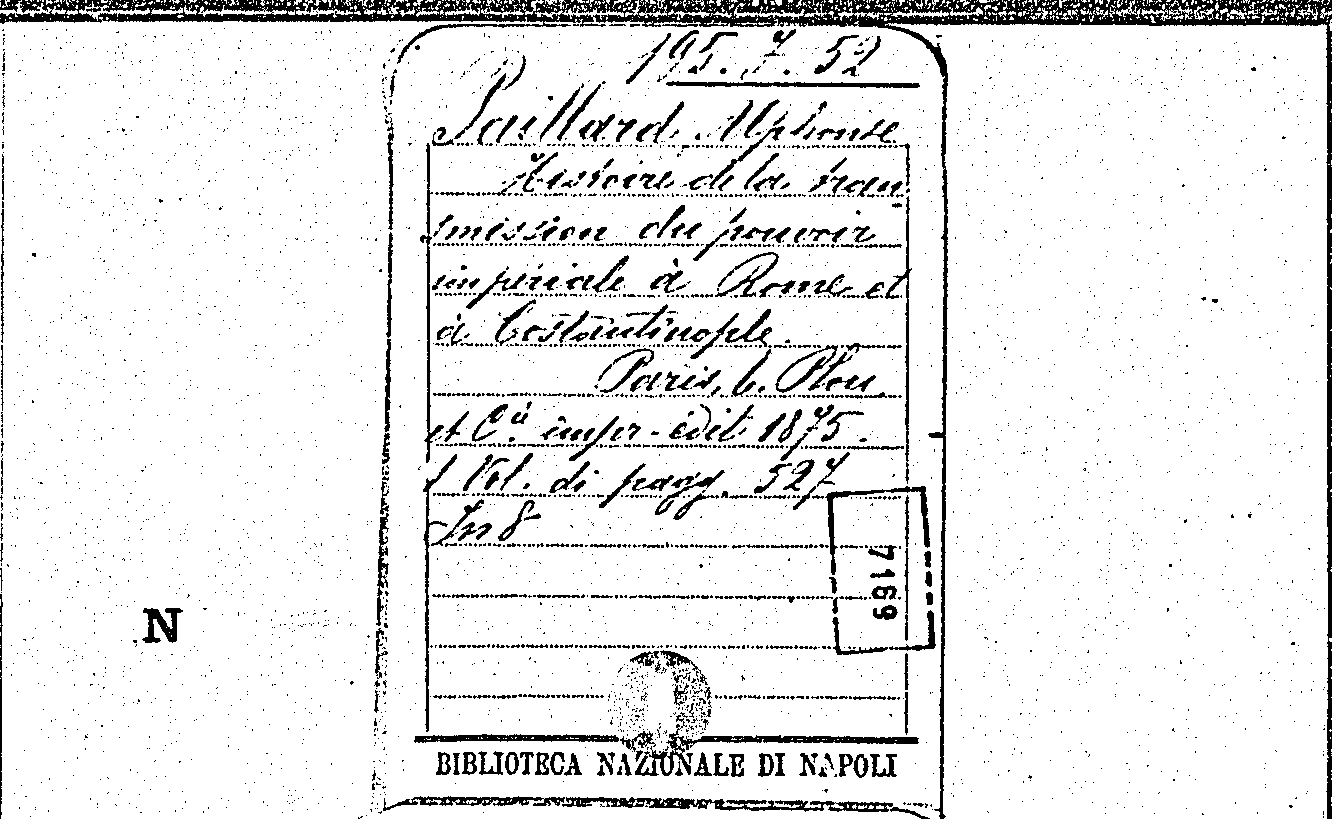 195.7.52
Paillard, Alphonse
Histoire de la tran
smission du pouvoir
impériale à Rome et
à Costantinople.
Paris, E. Plon
et C.ie impr-édit 1875.
1 Vol. di pagg. 527
In 8
7169
N
BIBLIOTECA NAZIONALE DI NAPOLI